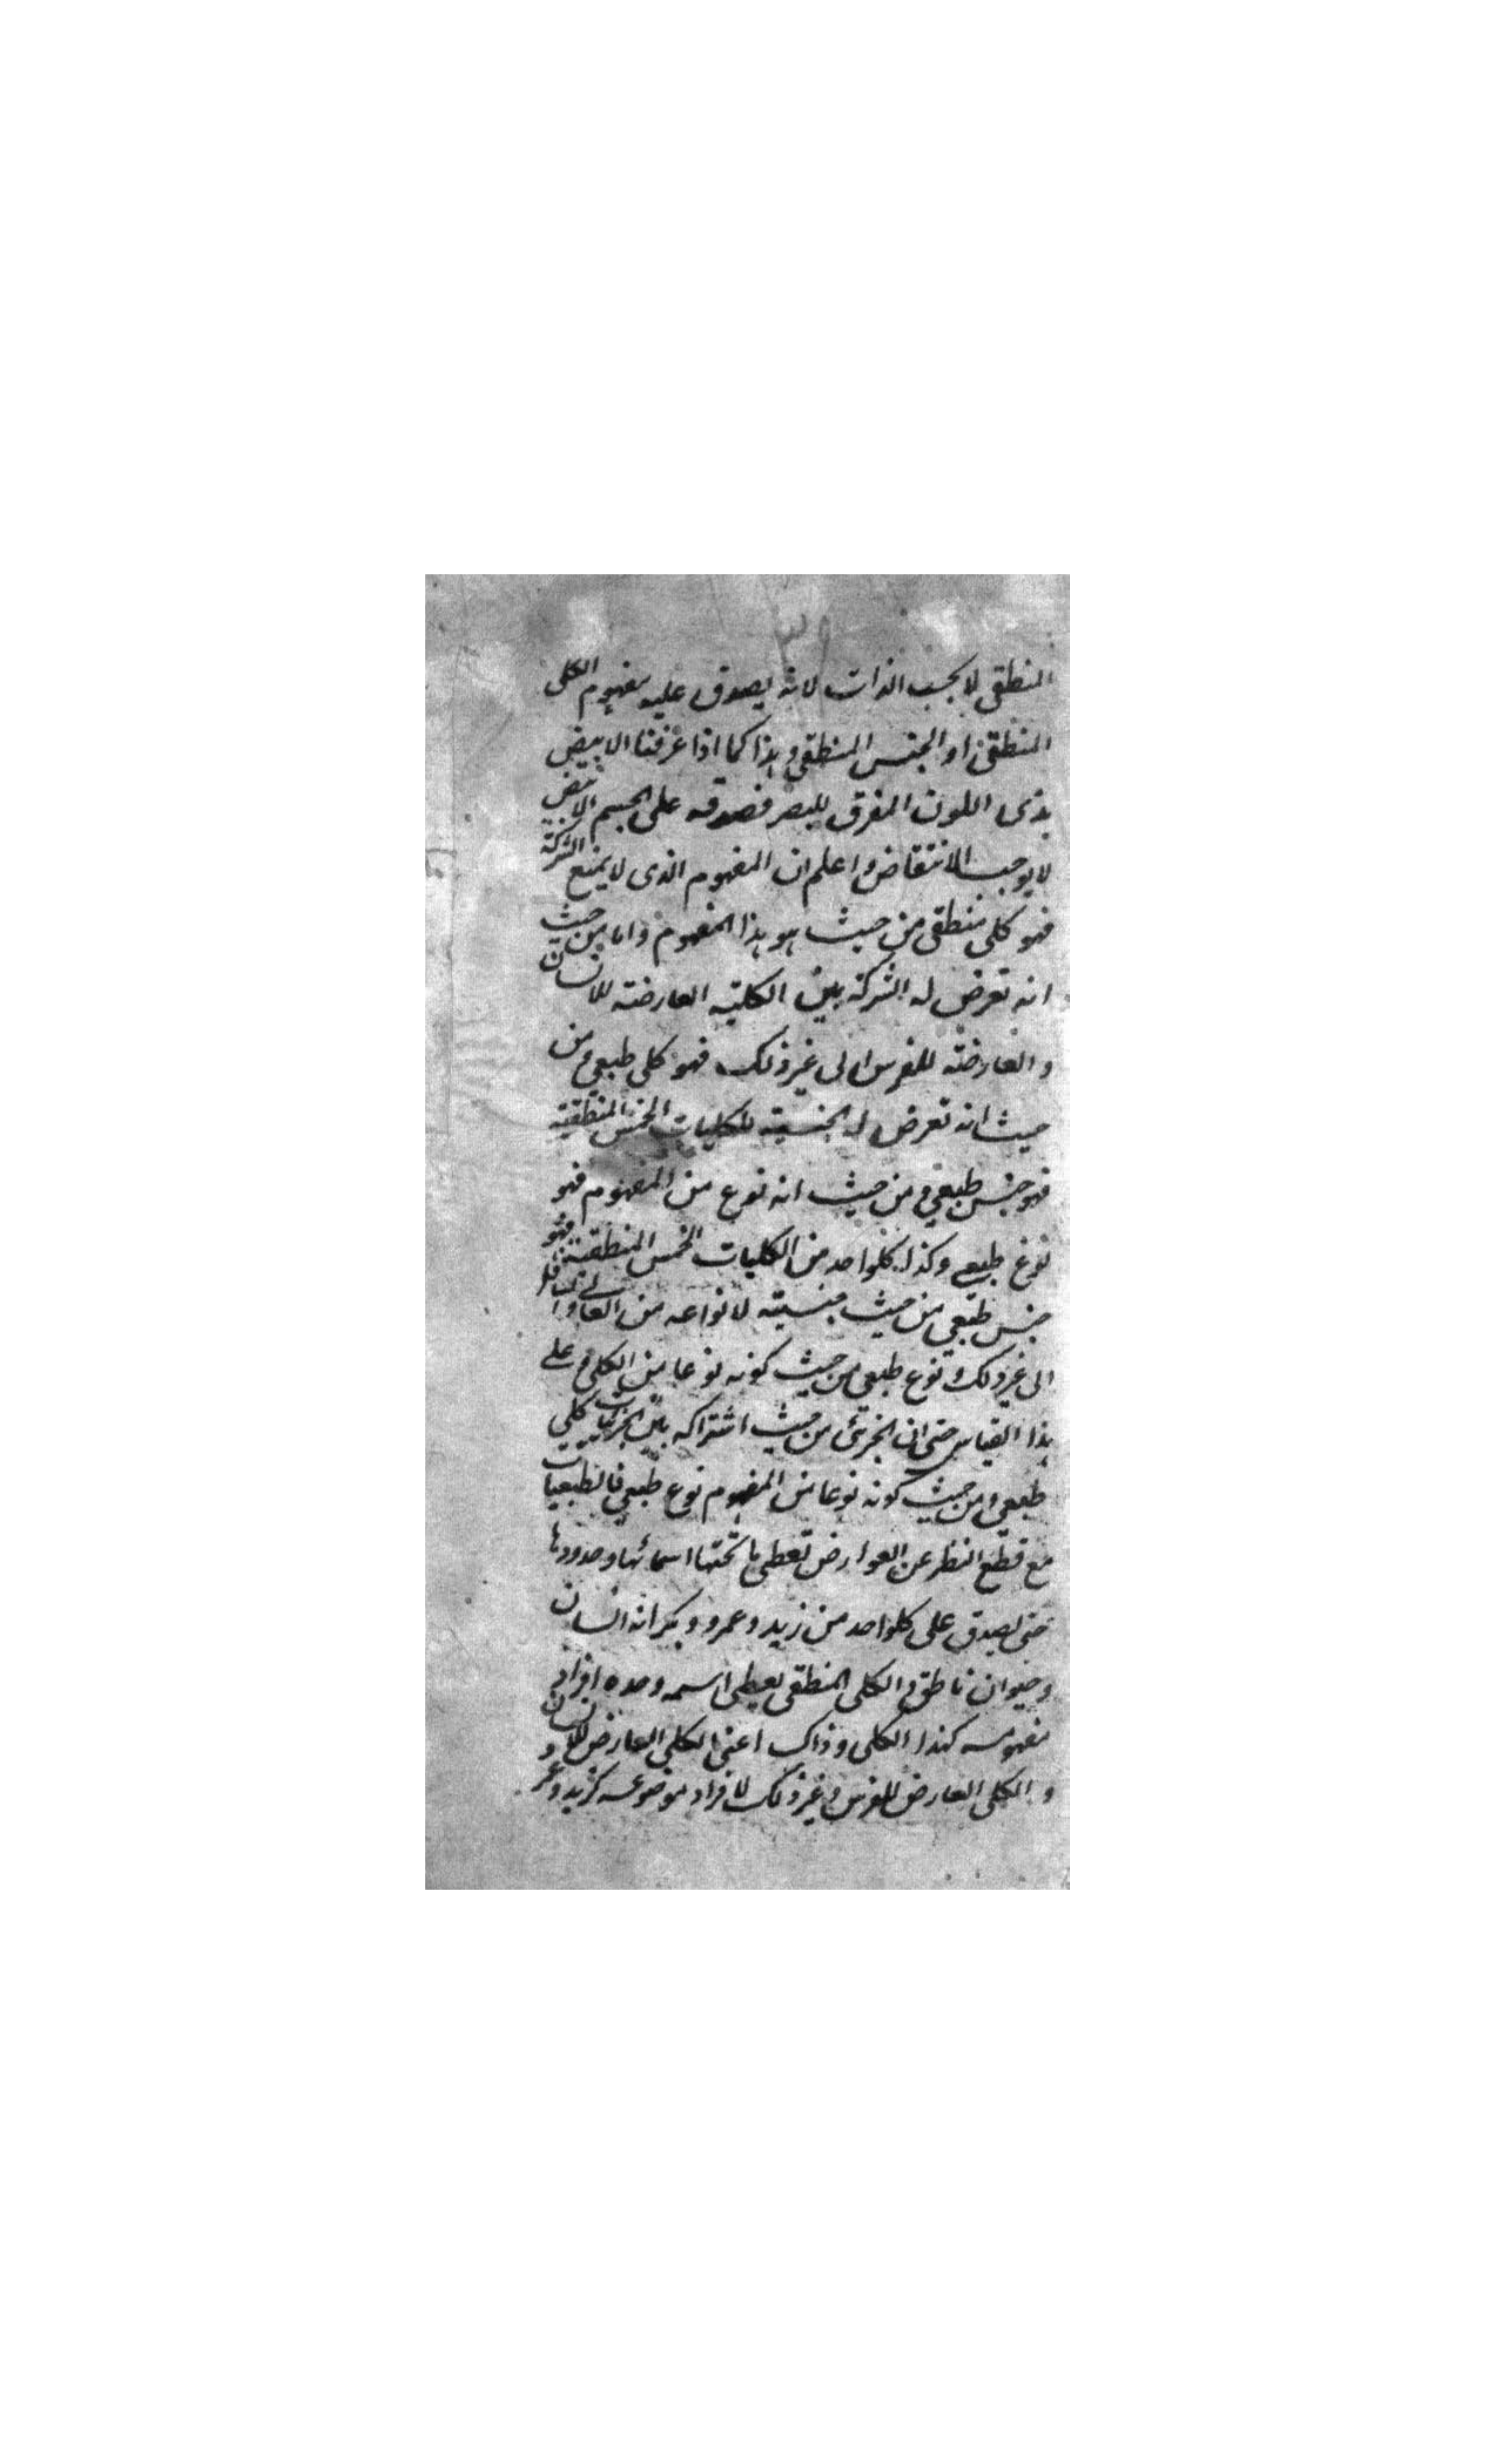 المنطقى لا بحسب الذات لانه يصدق عليه مفهوم الكلى
المنطقى او الجنس المنطقى وهذا كما اذا عرفنا الابيض
بذى اللون المفرق للبصر فصدقه على الجسم الابيض
لا يوجب الانتقاض واعلم ان المفهوم الذى لا يمنع الشركة
فهو كلى منطقى من حيث هو هذا المفهوم واما من حيث
انه تعرض له الشركة بين الكلية العارضة للانسان
والعارضة للفرس الى غير ذلك فهو كلى طبيعى ومن
حيث انه تعرض له الجنسية للكليات الخمس المنطقية
فهو جنس طبيعى ومن حيث انه نوع من المفهوم فهو
نوع طبيعى وكذا كلواحد من الكليات الخمس المنطقية فهو
جنس طبيعى من حيث جنسيته لانواعه من العالى والسافل
الى غير ذلك ونوع طبيعى من حيث كونه نوعا من الكلى وعلى
هذا القياس حتى ان الجزئى من حيث اشتراكه بين الجزئيات كلى
طبيعى ومن حيث كونه نوعا من المفهوم نوع طبيعى فالطبيعيات
مع قطع النظر عن العوارض تعطى ما تحتها اسمائها وحدودها
حتى يصدق على كلواحد من زيد وعمرو وبكر انه انسان
وحيوان ناطق والكلى المنطقى يعطى اسمه وحده افراد
مفهومه كهذا الكلى وذاك اعنى الكلى العارض للانسان
والكلى العارض للفرس وغير ذلك لا افراد موضوعه كزيد وعمرو